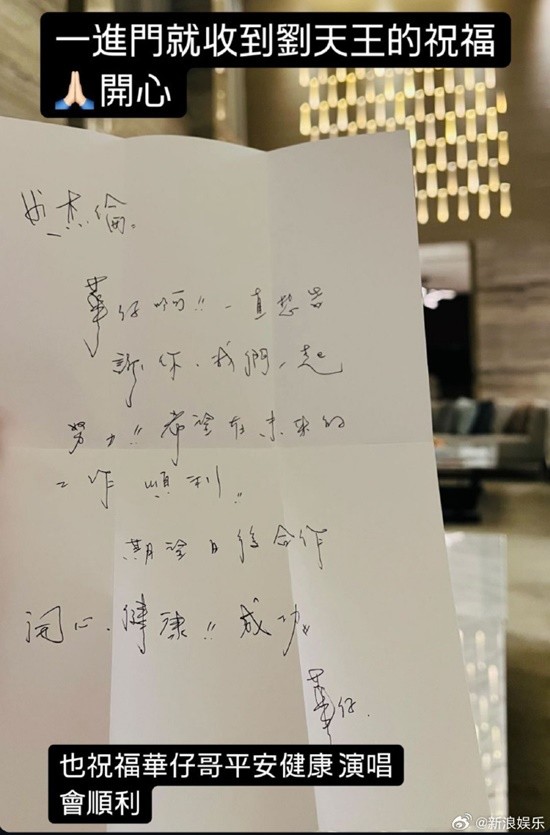 一進門就收到劉天王的祝福
🙏🏻開心
杰倫。
華仔啊!!一直想告
訴你、我們一起
努力!!希望在未來的
工作順利!!
期望日後合作
開心、健康!!成功!!
華仔.
也祝福華仔哥平安健康演唱
會順利
@新浪娱乐